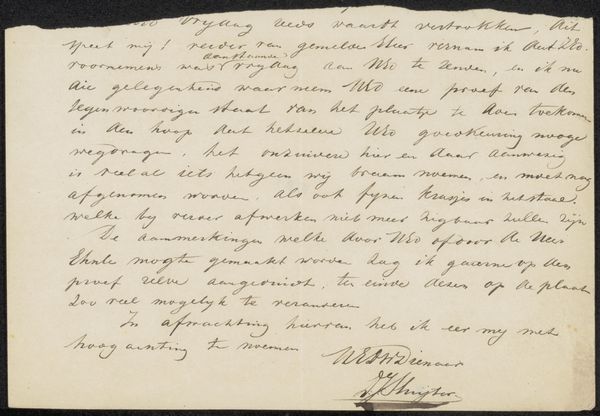 vrydag reeds vaardt vertrokken, dit
speet mij! verder van gemelde Heer vernam ik dat UEd.
aanstaande
voornemens was vrydag aan UEd te zenden, en ik nu
die gelegenheid waarneem UEd eene proef van den
tegenwoordigen staat van het plaatje te doen toekomen
in den hoop dat hetzelve UEd goedkeuring mooge
wegdragen, het onzuivere hier en daar aanwezig
is veel al iets hetgeen wij braam noemen, en moet nog
afgenomen worden, als ook fynen krasjes in het staal,
welke by verder afwerken niet meer zigbaar zullen zijn
De aanmerkingen welke door UEd of door de Heer
Ehnle mogte gemaakt worden zag ik gaerne op den
proef zelve aangeduidt, ten einde dezen op de plaat
zoo veel mogelyk te veranderen
In afwachting hiervan heb ik eer my met
hoogachting te noemen
UEdDWDienaar
DJSluyter